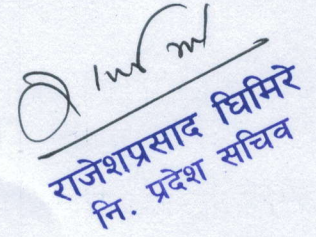 राजेशप्रसाद घिमिरे
नि. प्रदेश सचिव